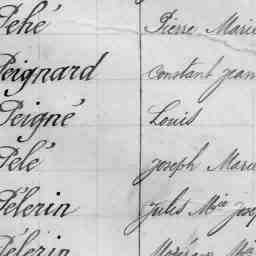 Pehé Pierre Marie
Peignard Constant Jean
Peigné Louis
Pelé Joseph Marie
Pélerin Jules Mie Josep
Pélerin